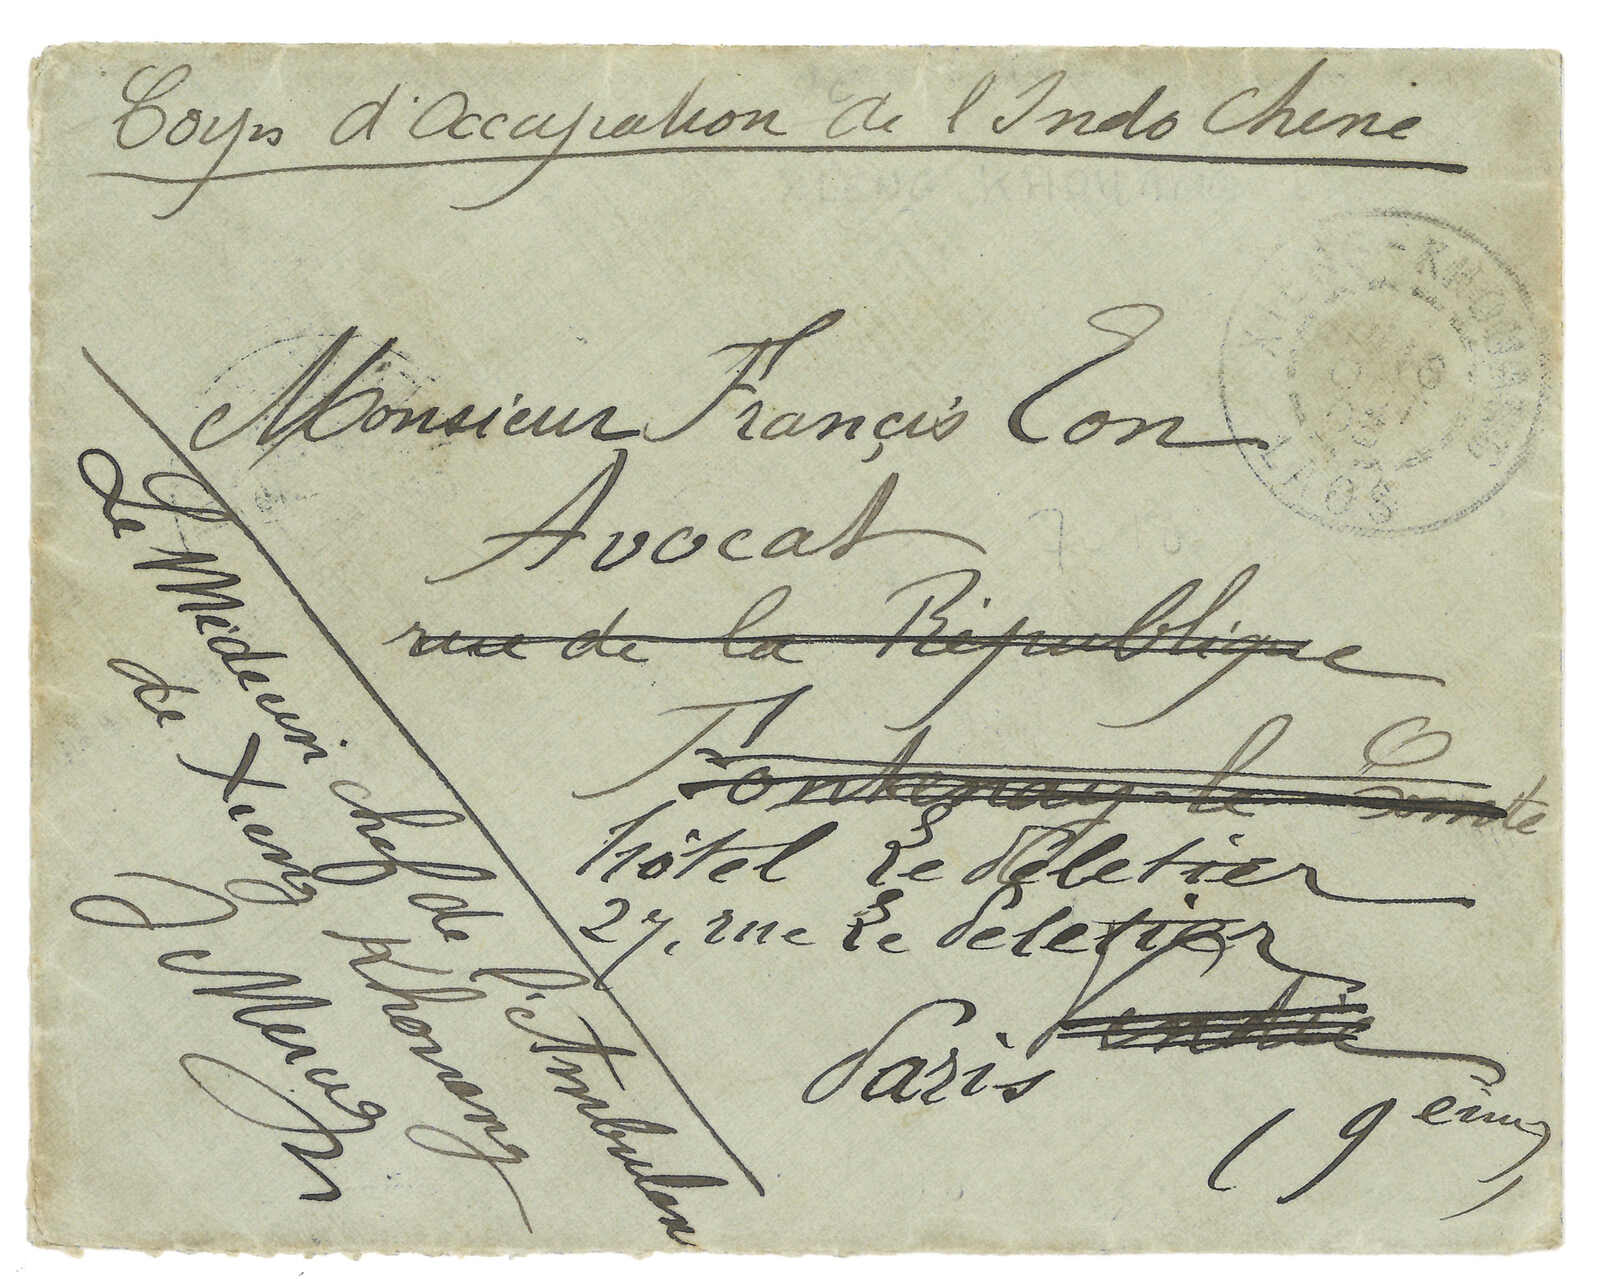 Corps d'Occupation de l'Indo Chine
XIENG-KHOUANG
LAOS
Monsieur Francis Eon
Avocat
rue de la République
Fontenay le Comte
hôtel Le Peletier
27, rue Le Peletier
Vendée
Paris
(9eme)
Le Médecin chef de l'Ambulance
de Xieng Khouang